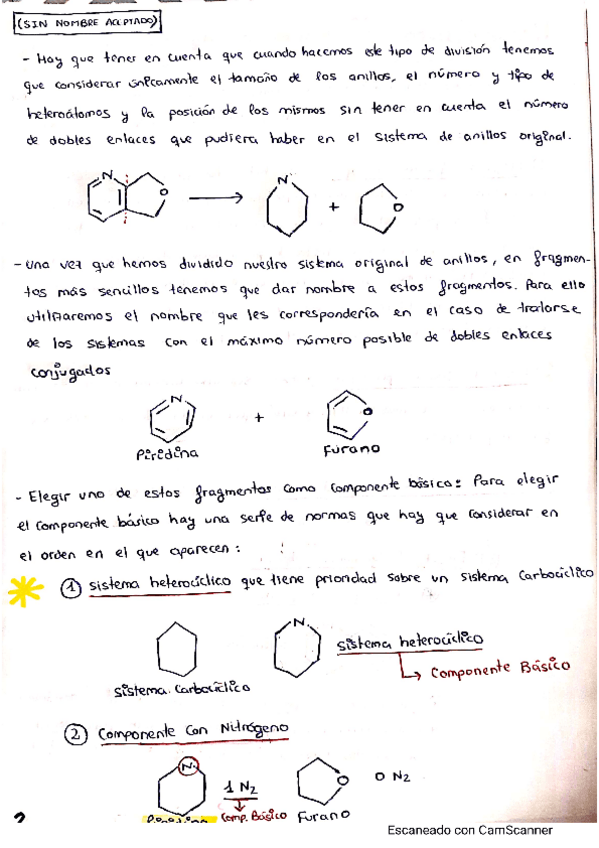 (SIN NOMBRE ACEPTADO)
- Hay que tener en cuenta que cuando hacemos este tipo de división tenemos
que considerar únicamente el tamaño de los anillos, el número y tipo de
heteroátomos y la posición de los mismos sin tener en cuenta el número
de dobles enlaces que pudiera haber en el sistema de anillos original.
N
O
N
+
O
- Una vez que hemos dividido nuestro sistema original de anillos, en fragmen-
tos más sencillos tenemos que dar nombre a estos fragmentos. Para ello
utilizaremos el nombre que les correspondería en el caso de tratarse
de los sistemas con el máximo número posible de dobles enlaces
conjugados
N
+
O
Piridina
Furano
- Elegir uno de estos fragmentos como componente básico: Para elegir
el componente básico hay una serie de normas que hay que considerar en
el orden en el que aparecen:
1 sistema heterocíclico que tiene prioridad sobre un sistema carbocíclico
N
sistema heterocíclico
Componente Básico
sistema carbocíclico
2 Componente con Nitrógeno
N
1 N2
O
0 N2
Piridina
Comp. Básico
Furano
2
Escaneado con CamScanner